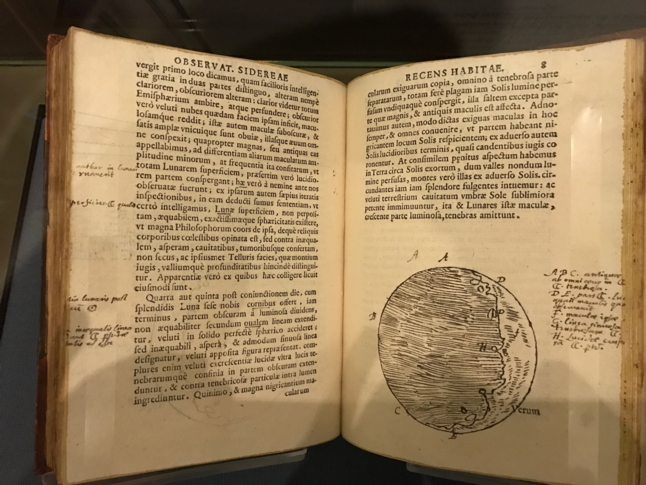 OBSERVAT. SIDEREAE
vergit primo loco dicamus, quam facilioris intelligen-
tiæ gratia in duas partes distinguo, alteram nempè
clariorem, obscuriorem alteram: clarior videtur totum
Emisphærium ambire, atque perfundere; obscurior
verò veluti nubes quædam faciem ipsam inficit, macu-
losamque reddit; istæ autem maculæ subobscuræ, &
satis amplæ vnicuique sunt obuiæ, illasque æuum om-
ne conspexit; quapropter magnas, seu antiquas eas
appellabimus, ad differentiam aliarum macularum am-
plitudine minorum, at frequentia ita consitarum, vt
totam Lunarem superficiem, præsertim verò lucidio-
rem partem conspergant; hæ verò à nemine ante nos
obseruatæ fuerunt; ex ipsarum autem sæpius iteratis
inspectionibus, in eam deducti sumus sententiam, vt
certò intelligamus, Lunæ superficiem, non perpoli-
tam, æquabilem, exactissimæque sphæricitatis existere,
vt magna Philosophorum cohors de ipsa, deque reliquis
corporibus cœlestibus opinata est, sed contra inæqua-
lem, asperam, cauitatibus, tumoribusque confertam,
non secus, ac ipsiusmet Telluris facies, quæ montium
iugis, valliumque profunditatibus hincinde distingui-
tur. Apparentiæ verò ex quibus hæc colligere licuit
eiusmodi sunt.
Quarta aut quinta post coniunctionem die, cum
splendidis Luna sese nobis cornibus offert, iam
terminus, partem obscuram à luminosa diuidens,
non æquabiliter secundum oualem lineam extendi-
tur, veluti in solido perfectè sphærico accideret;
sed inæquabili, aspera, & admodum sinuosa linea
designatur, veluti apposita figura repræsentat. com-
plures enim veluti excrescentiæ lucidæ vltra lucis te-
nebrarumque confinia in partem obscuram exten-
duntur, & contra tenebricosæ particulæ intra lumen
ingrediuntur. Quinimo, & magna nigricantium ma-
cularum
RECENS HABITAE. 8
cularum exiguarum copia, omnino à tenebrosa parte
separatarum, totam ferè plagam iam Solis lumine per-
fusam vndiquaque conspergit, illa saltem excepta par-
te quæ magnis, & antiquis maculis est affecta. Adno-
tauimus autem, modo dictas exiguas maculas in hoc
semper, & omnes conuenire, vt partem habeant ni-
gricantem locum Solis respicientem; ex aduerso autem
Solis lucidioribus terminis, quasi candentibus iugis co
ronentur. At consimilem penitus aspectum habemus
in Terra circa Solis exortum, dum valles nondum lu-
mine perfusas, montes verò illas ex aduerso Solis. cir-
cundantes iam iam splendore fulgentes intuemur: ac
veluti terrestrium cauitatum vmbræ Sole sublimiora
petente imminuuntur, ita & Lunares istæ maculæ,
crescente parte luminosa, tenebras amittunt.
A A
D
B
H
C
D
E
Verum